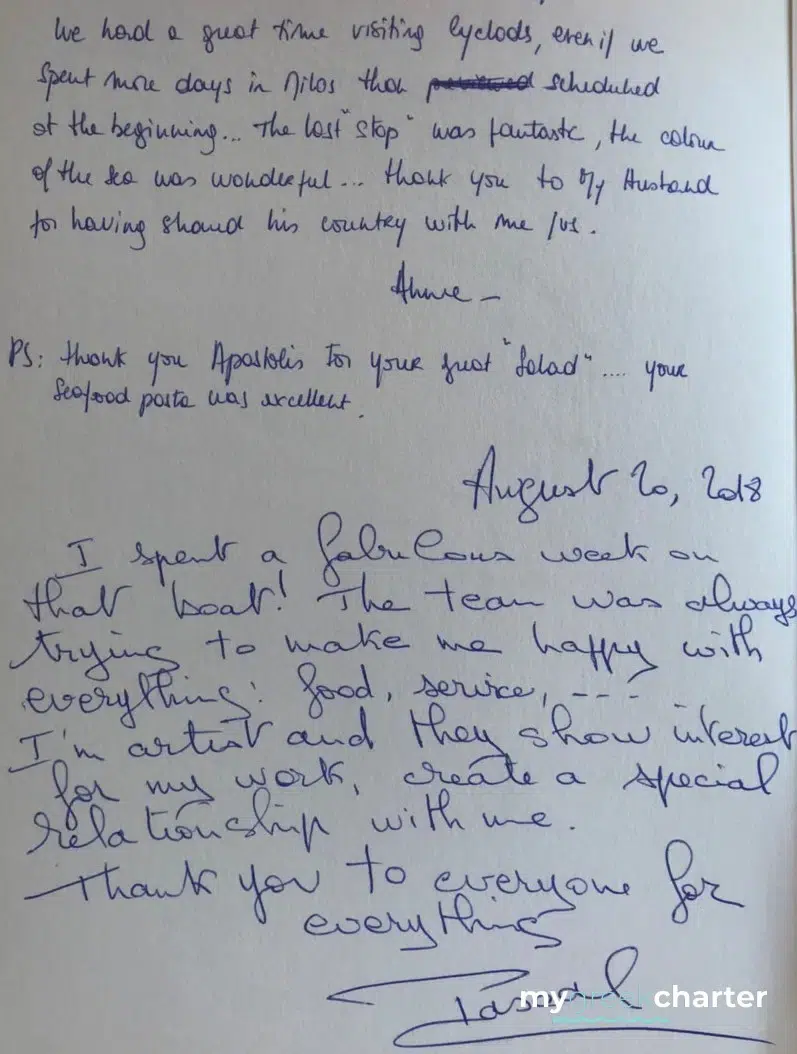 We had a great time visiting Cyclads, even if we
spent more days in Milos than scheduled
at the beginning... The last "stop" was fantastc, the colour
of the sea was wonderful... thank you to My Husband
for having shared his country with me /us.
PS: thank you Apostolis for your great "Salad".... your
Seafood pasta was excellent.
August 20, 2018
I spent a fabulous week on
that boat! The team was always
trying to make me happy with
everything: food, service, ---
I'm artist and they show interest
for my work, create a special
relationship with me.
Thank you to everyone for
everything
Pascal
my greek charter